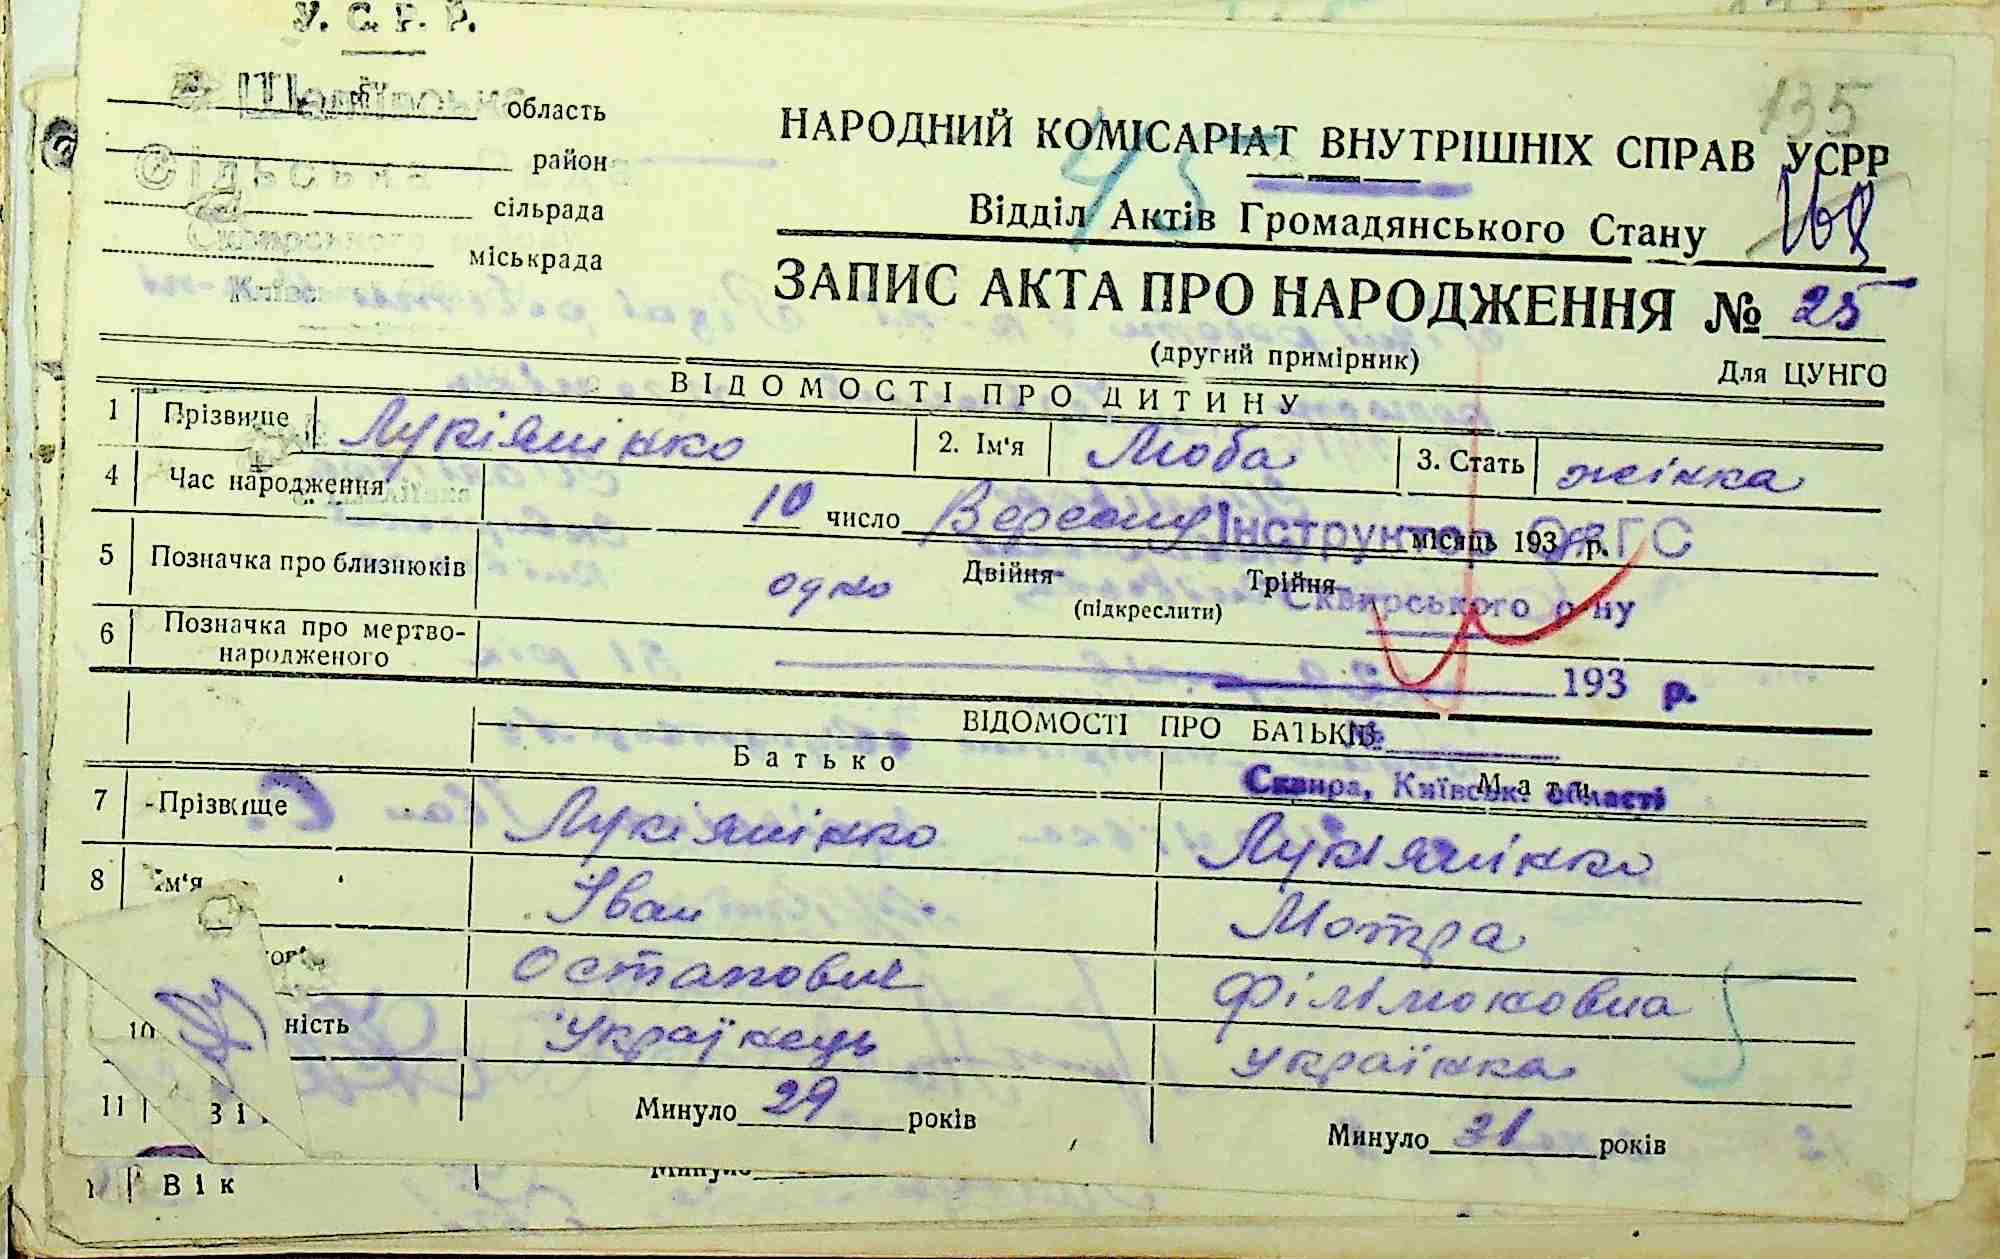 У. С. Р. Р.
область
район
Сільська
сільрада
Сквирського
міськрада
135
НАРОДНИЙ КОМІСАРІАТ ВНУТРІШНІХ СПРАВ УСРР
45
Відділ Актів Громадянського Стану 168
ЗАПИС АКТА ПРО НАРОДЖЕННЯ № 25
(другий примірник) Для ЦУНГО
ВІДОМОСТІ ПРО ДИТИНУ
1 Прізвище Лукіянінко 2. Ім'я Люба 3. Стать жінка
4 Час народження 10 число Вересня місяць 193 р.
Інструктор ОАГС
5 Позначка про близнюків одно Двійня Трійня
(підкреслити)
Сквирського р-ну
6 Позначка про мертво-
народженого 193 р.
ВІДОМОСТІ ПРО БАТЬКІВ
Батько Мати
Сквира, Київськ. області
7 Прізвище Лукіянінко Лукіянінко
8 Ім'я Іван Мотра
Остапович Філімоновна
10 ність Українець Українка
11 Минуло 29 років Минуло 31 років
Вік Минуло